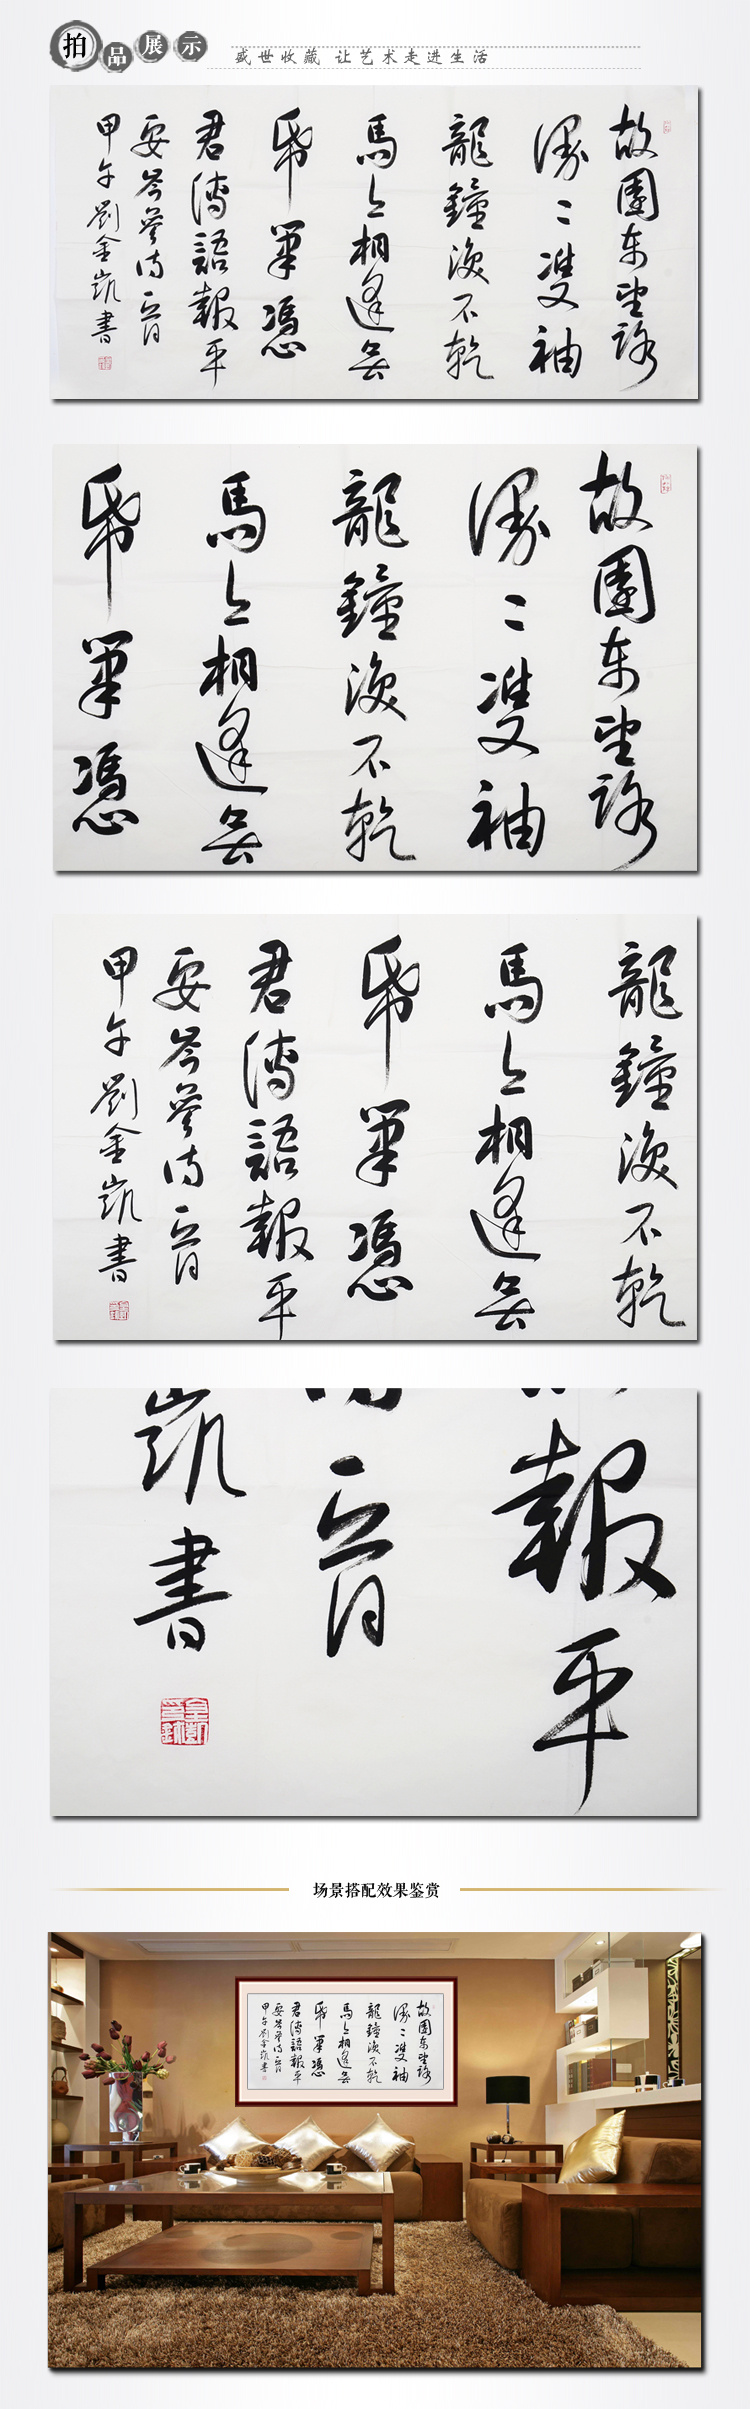 拍品展示
盛世收藏 让艺术走进生活
故園東望路
漫〻雙袖
龍鐘淚不乾
馬上相逢無
帋筆憑
君傳語報平
安岑參詩一首
甲午劉金凱書
故園東望路
漫〻雙袖
龍鐘淚不乾
馬上相逢無
帋筆憑
龍鐘淚不乾
馬上相逢無
帋筆憑
君傳語報平
安岑參詩一首
甲午劉金凱書
報平
一首
凱書
场景搭配效果鉴赏
故園東望路
漫〻雙袖
龍鐘淚不乾
馬上相逢無
帋筆憑
君傳語報平
安岑參詩一首
甲午劉金凱書